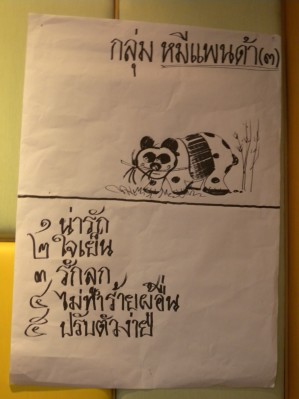 กลุ่ม หมีแพนด้า(๓)
๑ น่ารัก
๒ ใจเย็น
๓ รักลูก
๔ ไม่ทำร้ายผู้อื่น
๕ ปรับตัวง่าย